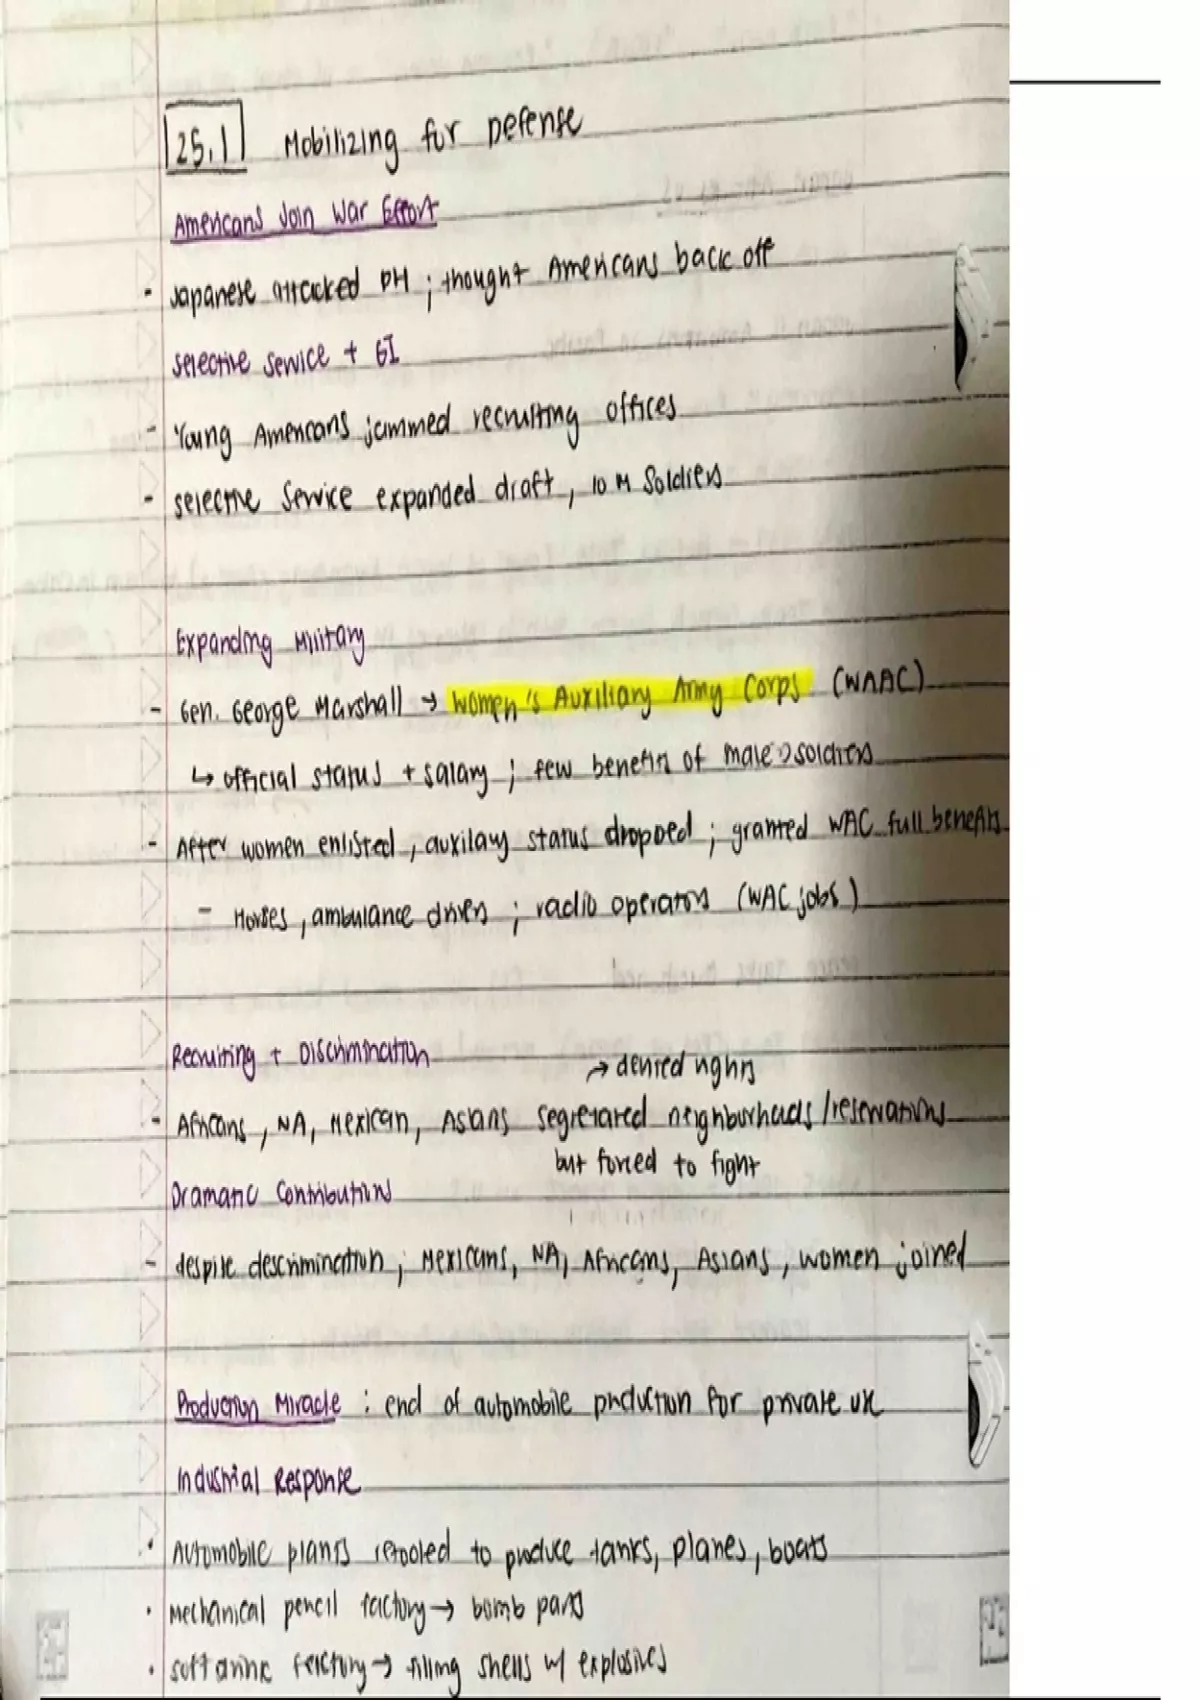 25.1 Mobilizing for Defense
Americans Join War Effort
- Japanese attacked PH ; thought Americans back off
Selective Service + GI
- Young Americans jammed recruiting offices
- Selective Service expanded draft, 10 M Soldiers
Expanding Military
- Gen. George Marshall → Women's Auxiliary Army Corps (WAAC)
↳ official status + salary ; few benefits of male soldiers
- After women enlisted, auxilary status dropped ; granted WAC full benefits
- Nurses, ambulance drivers ; radio operators (WAC jobs)
Recruiting + Discrimination
→ denied rights
- Africans, NA, Mexican, Asians segregated neighborhoods/reservations
but forced to fight
Dramatic Contributions
- despite descrimination ; Mexicans, NA, Africans, Asians, women joined
Production Miracle : end of automobile production for private use
Industrial Response
• Automobile plants retooled to produce tanks, planes, boats
• Mechanical pencil factory → bomb parts
• soft drink factory → filling shells w/ explosives